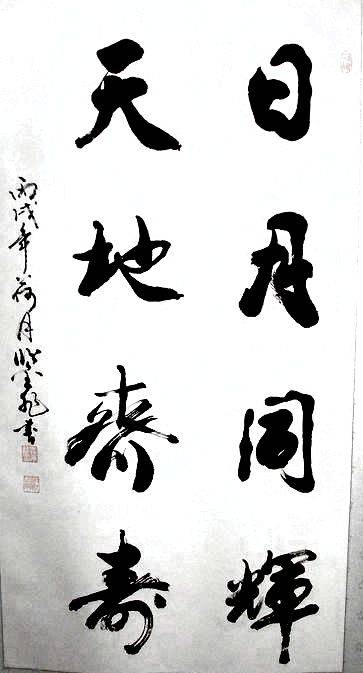 日月同輝
天地齐寿
丙戌年荷月
書